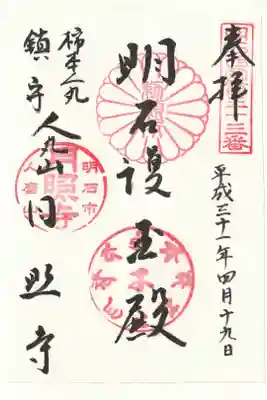 奉拝
平成三十一年四月十九日
明石護王殿
柿本人丸
鎮守 人丸山月照寺
明石市
月照寺